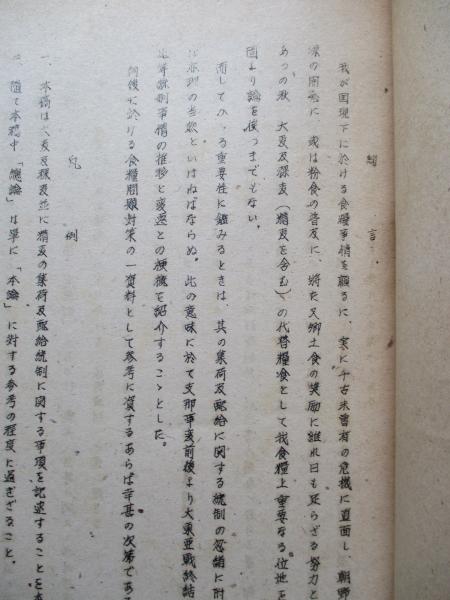 緒言
我が国現下に於ける食糧事情を顧るに、実に千古未曽有の危機に直面し、朝野
源の開拓に、或は粉食の普及に、将た又郷土食の奨励に維れ日も足らざる努力と
あつの秋、大麦及裸麦(精麦を含む)の代替糧食として我食糧上重要なる位地を
固より論を俟つまでもない。
而してかゝる重要性に鑑みるときは、其の集荷及配給に関する統制の忽緒に附
は亦理の当然といはねばならぬ。此の意味に於て支那事変前後より大東亜戦終結
統制事情の推移と変遷との梗概を紹介することゝした。
何後に於ける食糧問題対策の一資料として参考に資するあらば幸甚の次第である
凡例
一、本稿は大麦及裸麦並に精麦の集荷及配給統制に関する事項を記述することを本
随て本稿中「総論」は単に「本論」に対する参考の程度に過ぎざること。